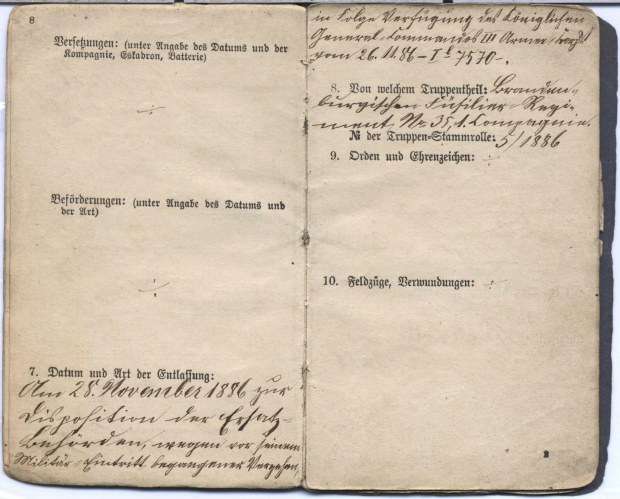 8
Versetzungen: (unter Angabe des Datums und der
Kompagnie, Eskadron, Batterie)
Beförderungen: (unter Angabe des Datums und
der Art)
7. Datum und Art der Entlassung:
Am 28. November 1886 zur
Disposition der Ersatz-
behörden, wegen vor seinem
Militär-Eintritt begangener Vergehen,
in Folge Verfügung des Königlichen
General-Commandos III Armee-Corps
vom 26.11.86 – I 7570 –.
8. Von welchem Truppentheil: Branden-
burgischen Füsilier-Regi-
ment Nr. 35, 1. Compagnie.
№ der Truppen-Stammrolle: 5/1886
9. Orden und Ehrenzeichen:
10. Feldzüge, Verwundungen: